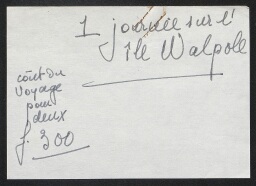 1 journée sur l'
île Walpole
coût du
voyage
pour
deux
f. 300